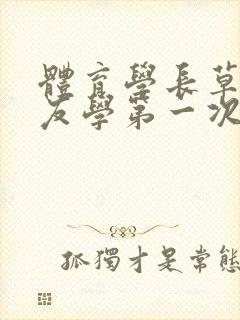 體育學長草
友學第一次
孤獨才是常態